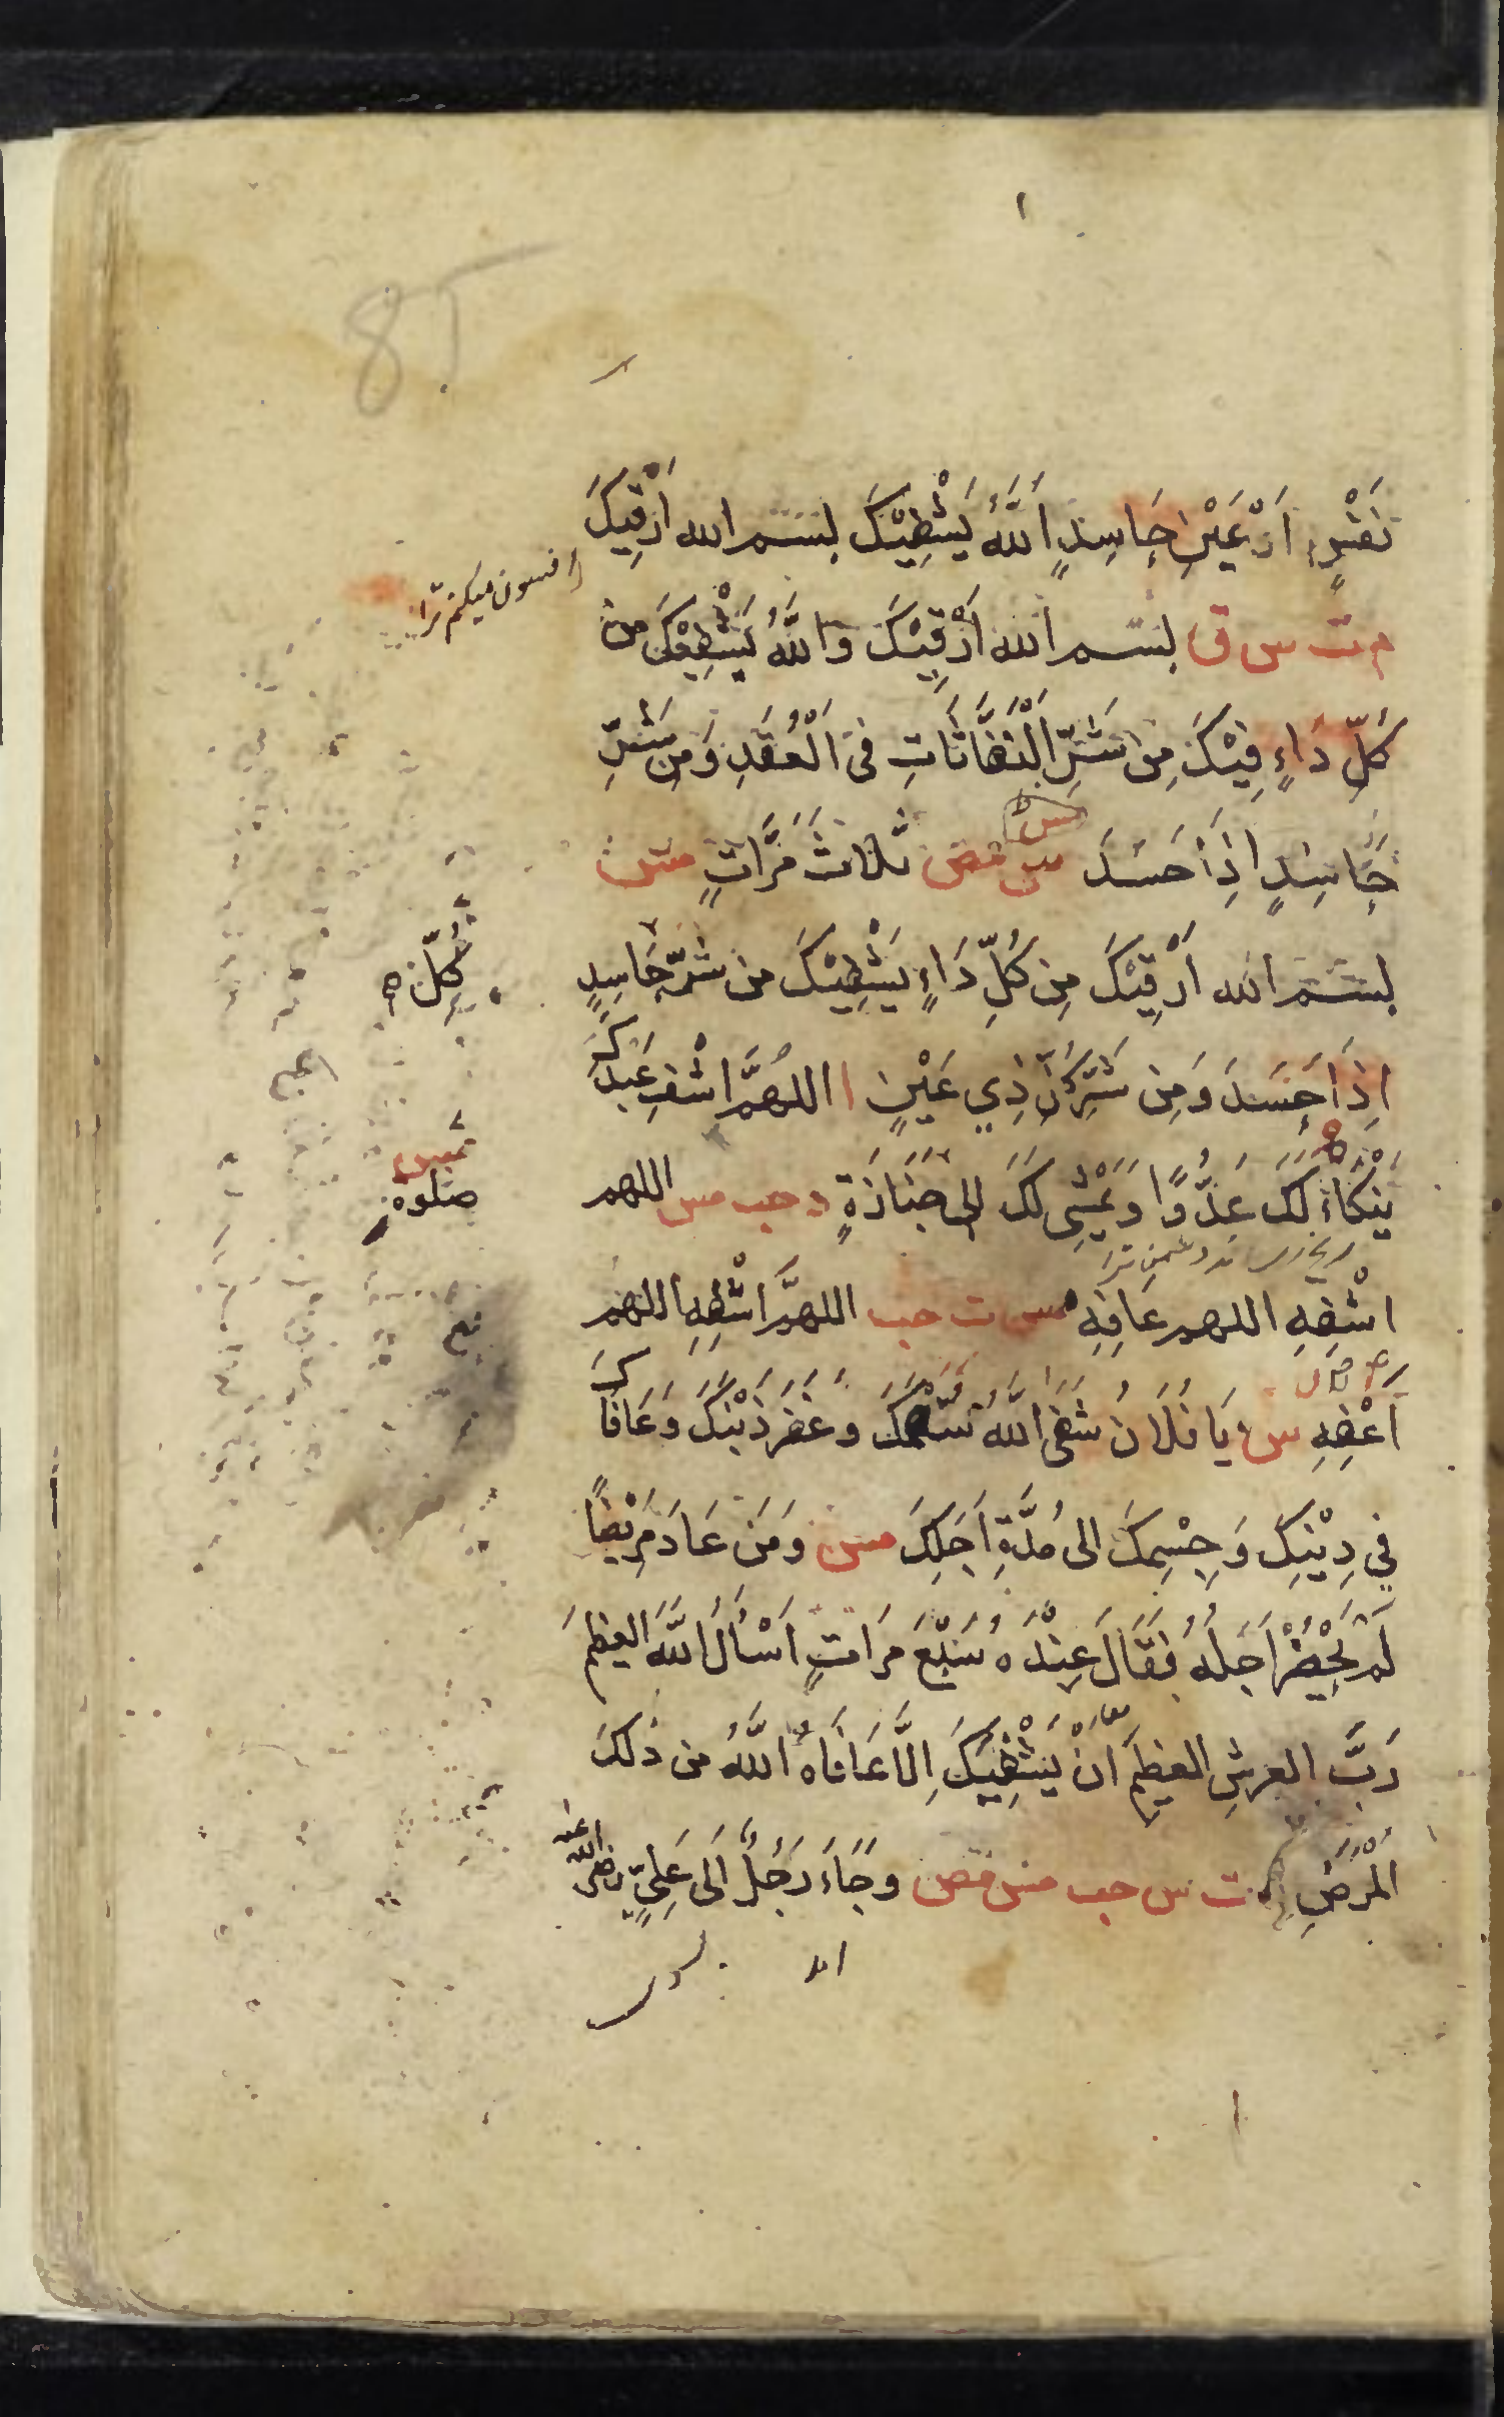 نَفْسٍ اَوْ عَيْنِ حَاسِدٍ اَللّٰهُ يَشْفِيْكَ بسم الله اَرْقِيكَ
افسون میکنم ترا
م ت س ق بسم الله اَرْقِيْكَ وَاللّٰهُ يَشْفِيْكَ من
كُلِّ دَاءٍ فِيْكَ مِن شَرِّ النَّفَّاثَاتِ فى الْعُقَدِ وَمِن شَرِّ
حَاسِدٍ اِذَا حَسَدَ مس مص ثلاثَ مَرَّاتٍ مس
بسم الله اَرْقِيْكَ مِن كُلِّ دَاءٍ يَشْفِيْكَ من شرِّ حَاسِدٍ
كُلّ
اِذَا حَسَدَ وَمِن شَرِّ كُلِّ ذِي عَيْنٍ ا اللهُمَّ اشْفِ عَبْدَكَ
يَنْكَاءُ لَكَ عَدُوًّا وَيَمْشِى لَكَ الى جَنَازَةٍ د حب مس اللهم
صلوة
رنج رساند دشمن ترا
اشْفِهِ اللهم عَافِهِ مس ت حب اللهمَّ اشْفِهِ اللهم
اَعْفِهِ س يَا فُلَانُ شَفَى اللّٰهُ سَقَمَكَ وغَفَرَ ذَنْبَكَ وَعَافَاكَ
فِي دِيْنِكَ وَجِسْمِكَ الى مُدَّةِ اَجَلِكَ مس وَمَن عَادَ مَرِيْضًا
لَمْ يَحْضُرْ اَجَلُهُ فَقَالَ عِنْدَهُ سَبْعَ مَرَاتٍ اَسْأَلُ اللّٰهَ العظيمَ
رَبَّ العرشِ العظيمِ اَنْ يَشْفِيَكَ اِلَّا عَافَاهُ اللّٰهُ من ذٰلكَ
الْمَرَضِ د ت س حب مس مص وجَاءَ رَجُلٌ اِلَى عَلِيٍّ رضى الله عنه